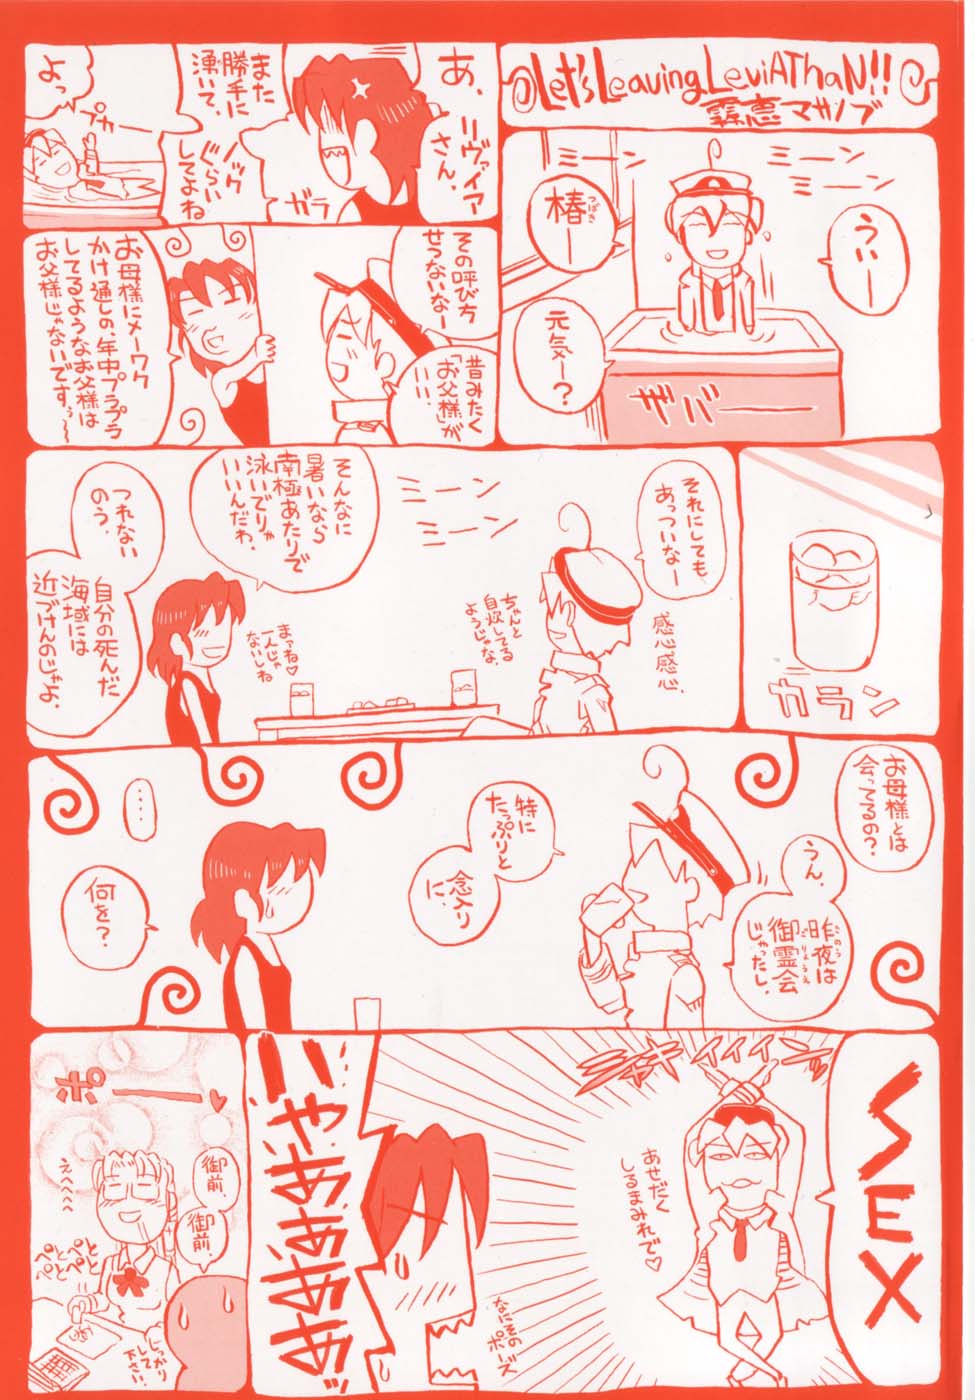 Let's Leaving LeviAThaN!!
霧恵マサノブ
ミーン
ミーン
ミーン
うぃー
椿ー
つばき
元気ー?
ザバーー
あ、
リヴァイアさん、
また
勝手に
湧いて、
ノック
ぐらい
してよね
ガラ
よっ
プカー
その呼び方
せつないなー
昔みたく
「お父様」が
いい、
お母様にメーワク
かけ通しの、年中プラプラ
してるようなお父様は
お父様じゃないですぅ〜〜
カラン
それにしても
あっついなー
感心感心、
ちゃんと
自炊してる
ようじゃな、
ミーン
ミーン
そんなに
暑いなら
南極あたりで
泳いでりゃ
いいんだわ、
まァね♡
一人じゃ
ないしね
つれない
のう、
自分の死んだ
海域には
近づけんのじゃよ、
お母様とは
会ってるの?
うん、
昨夜は
御霊会
じゃったし、
ごりょうえ
特に
たっぷりと
念入り
に、
‥‥
何を?
SEX
シャキィィィンッ
あせだく
しるまみれで♡
なにそのポーズ
いやあああああぁッ
ポーー♥
御前、
御前、
えへへへへ
ぺとぺと
ぺとぺと
しっかり
して
下さい!